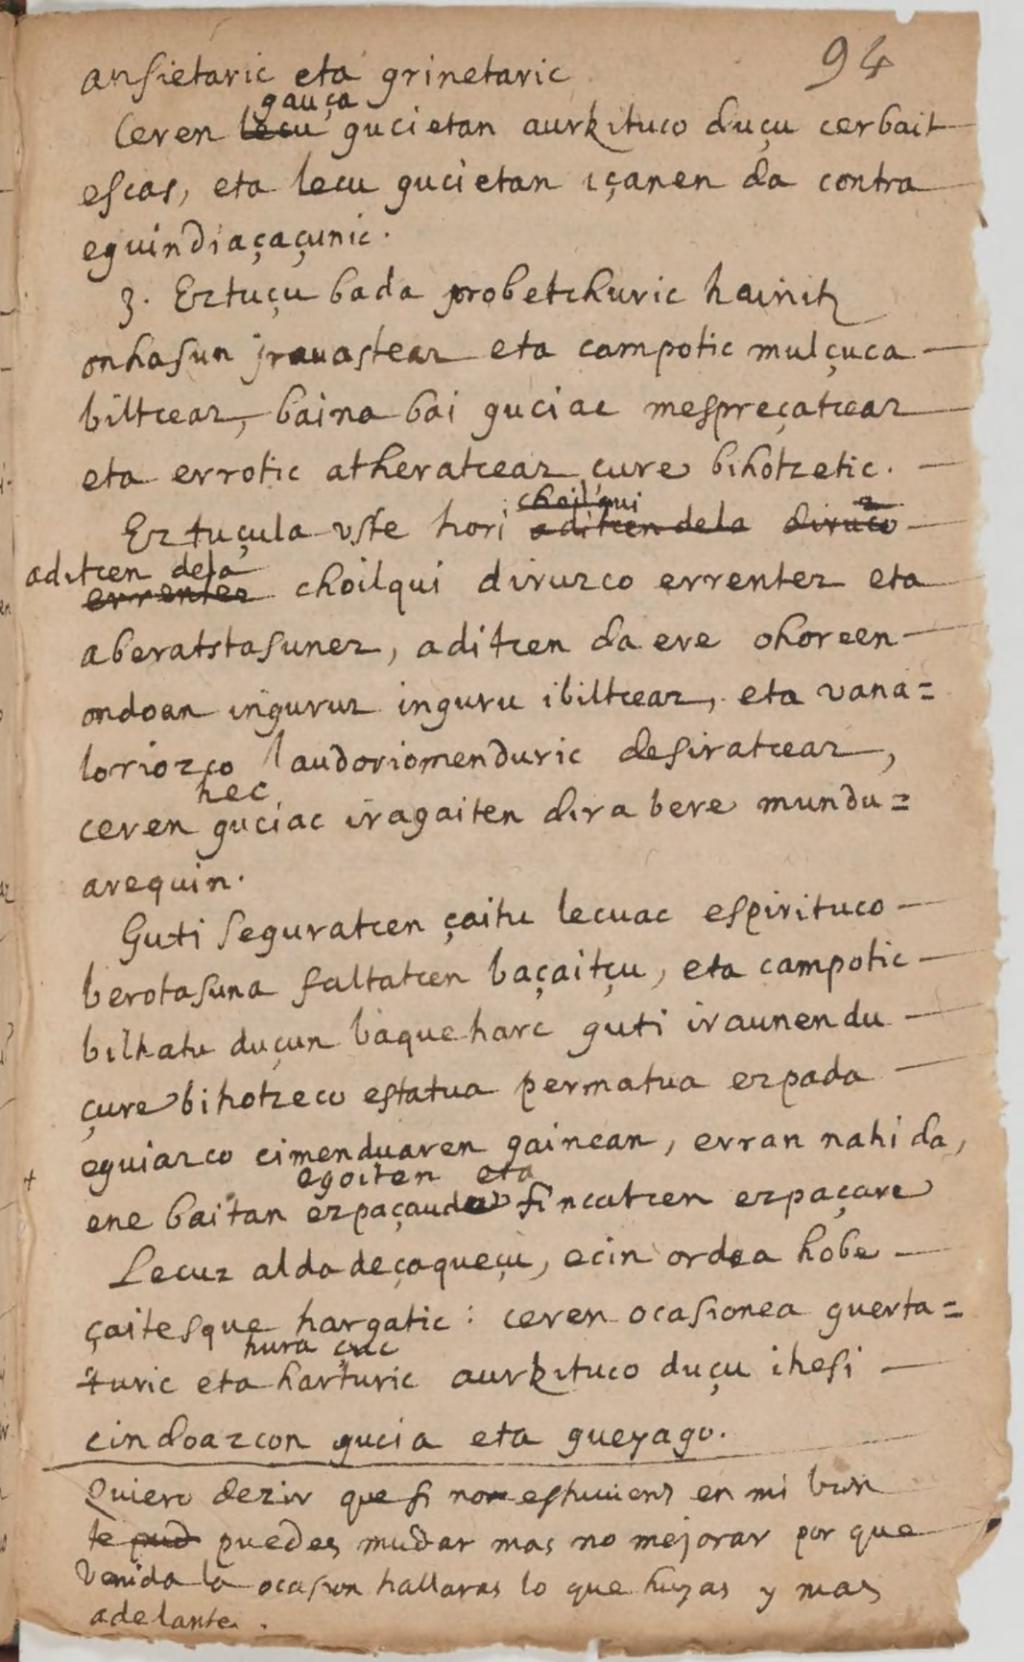 94
ansietaric eta grinetaric
gauça
Ceren lecu gucietan aurkituco duçu cerbait
escas, eta lecu gucietan içanen da contra
eguindiaçaçunic.
3. Eztuçu bada probetchuric hainitz
onhasun jrauastear eta campotic mulçuca
biltcear, baina bai guciac mespreçatcear
eta errotic atheratcear çure bihotzetic.
choilqui
Eztuçula uste hori aditcen dela diruzco
aditcen dela
errentez choilqui diruzco errentez eta
aberatstasunez, aditcen da ere ohoreen
ondoan inguruz inguru ibiltcear, eta vana=
loriozco laudoriomenduric desiratcear,
hec
ceren guciac iragaiten dira bere mundu=
arequin.
Guti seguratcen çaitu lecuac espirituco
berotasuna faltatcen baçaitçu, eta campotic
bilhatu duçun baque harc guti iraunen du
çure bihotzeco estatua permatua ezpada
eguiazco cimenduaren gainean, erran nahi da,
egoiten eta
+ ene baitan ezpaçaude fincatcen ezpaçare
Lecuz alda deçaqueçu, ecin ordea hobe
çaitesque hargatic: ceren ocasionea guerta=
hura
turic eta harturic aurkituco duçu ihesi
cindoazcon gucia eta gueyago.
Quiero dezir que si no estuuiens en mi bien
te pued puedes mudar mas no mejorar por que
Venida la ocasion hallaras lo que huyas y mas
adelante.